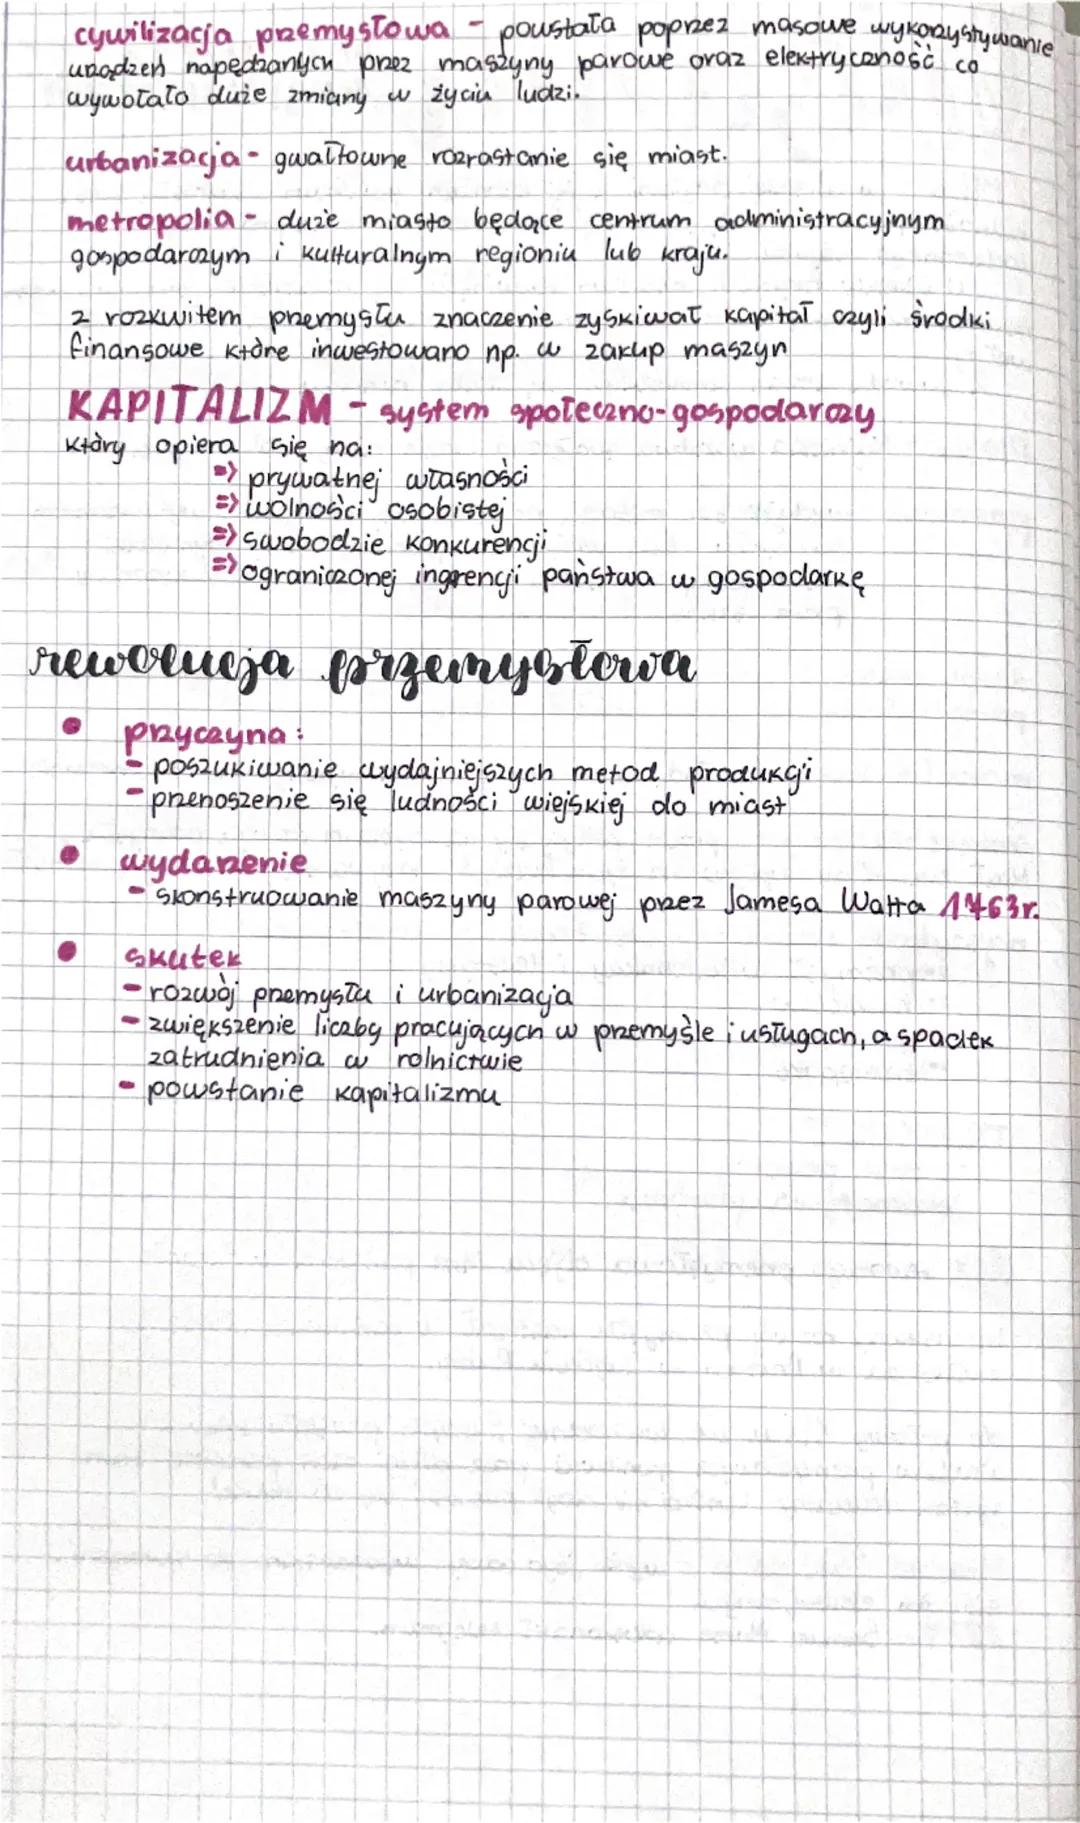 cywilizacja przemysłowa - powstała poprzez masowe wykorzystywanie
urządzeń napędzanych przez maszyny parowe oraz elektryczność co
wywołało duże zmiany w życiu ludzi.
urbanizacja - gwałtowne rozrastanie się miast.
metropolia - duże miasto będące centrum administracyjnym
gospodarczym i kulturalnym regioniu lub kraju.
z rozkwitem przemysłu znaczenie zyskiwał kapitał czyli środki
finansowe które inwestowano np. w zakup maszyn
KAPITALIZM - system społeczno-gospodarczy
który opiera się na:
=> prywatnej własności
=> wolności osobistej
=> swobodzie konkurencji
=> ograniczonej ingerencji państwa w gospodarkę
rewolucja przemysłowa
• przyczyna:
- poszukiwanie wydajniejszych metod produkcji
- przenoszenie się ludności wiejskiej do miast
• wydarzenie
- skonstruowanie maszyny parowej przez Jamesa Watta 1763r.
• skutek
- rozwój przemysłu i urbanizacja
- zwiększenie liczby pracujących w przemyśle i usługach, a spadek
zatrudnienia w rolnictwie
- powstanie kapitalizmu